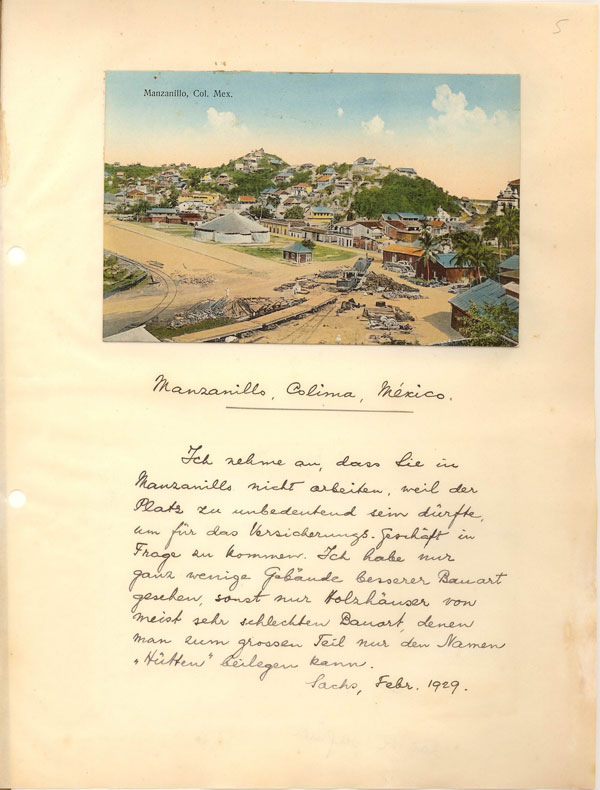 5
Manzanillo, Col. Mex.
Manzanillo, Colima, México.
Ich nehme an, dass Sie in
Manzanillo nicht arbeiten, weil der
Platz zu unbedeutend sein dürfte,
um für das Versicherungs-Geschäft in
Frage zu kommen. Ich habe nur
ganz wenige Gebäude besserer Bauart
gesehen, sonst nur Holzhäuser von
meist sehr schlechten Bauart, denen
man zum grossen Teil nur den Namen
„Hütten" beilegen kann.
Sachs, Febr. 1929.